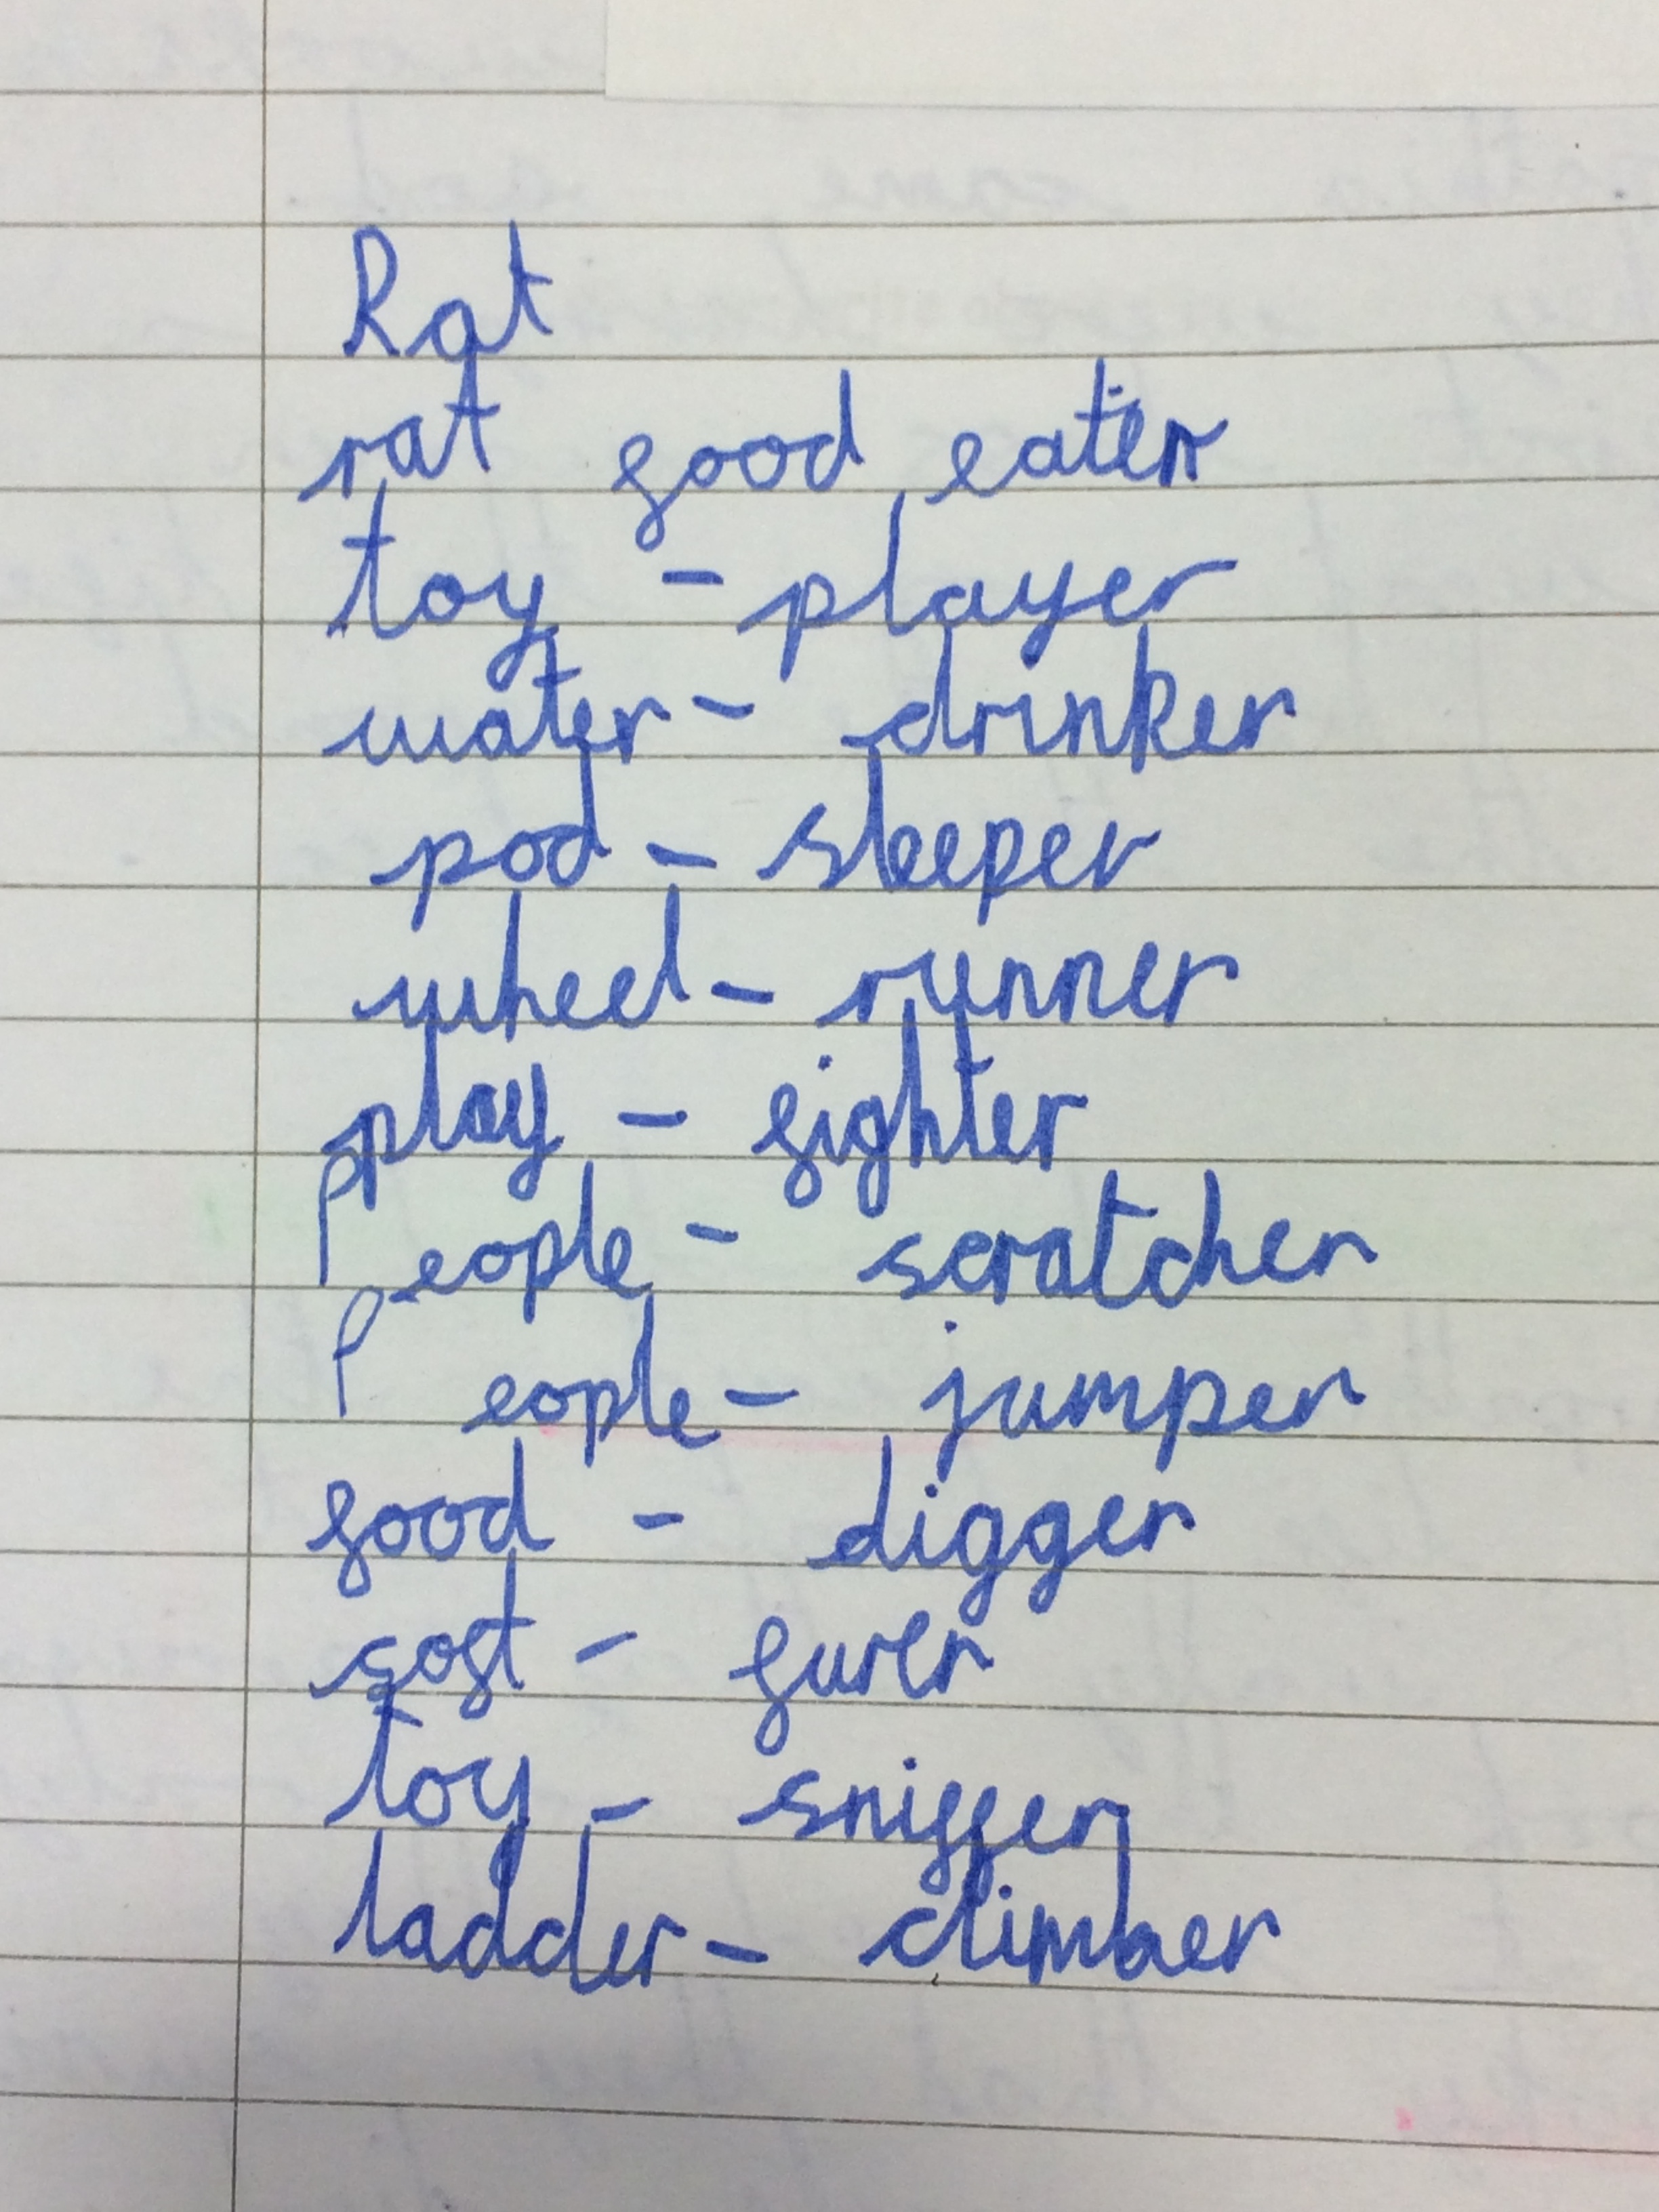 Rat
rat food eater
toy - player
water - drinker
pod - sleeper
wheel - runner
play - fighter
People - scratcher
People - jumper
food - digger
soft - furer
toy - sniffer
ladder - climber